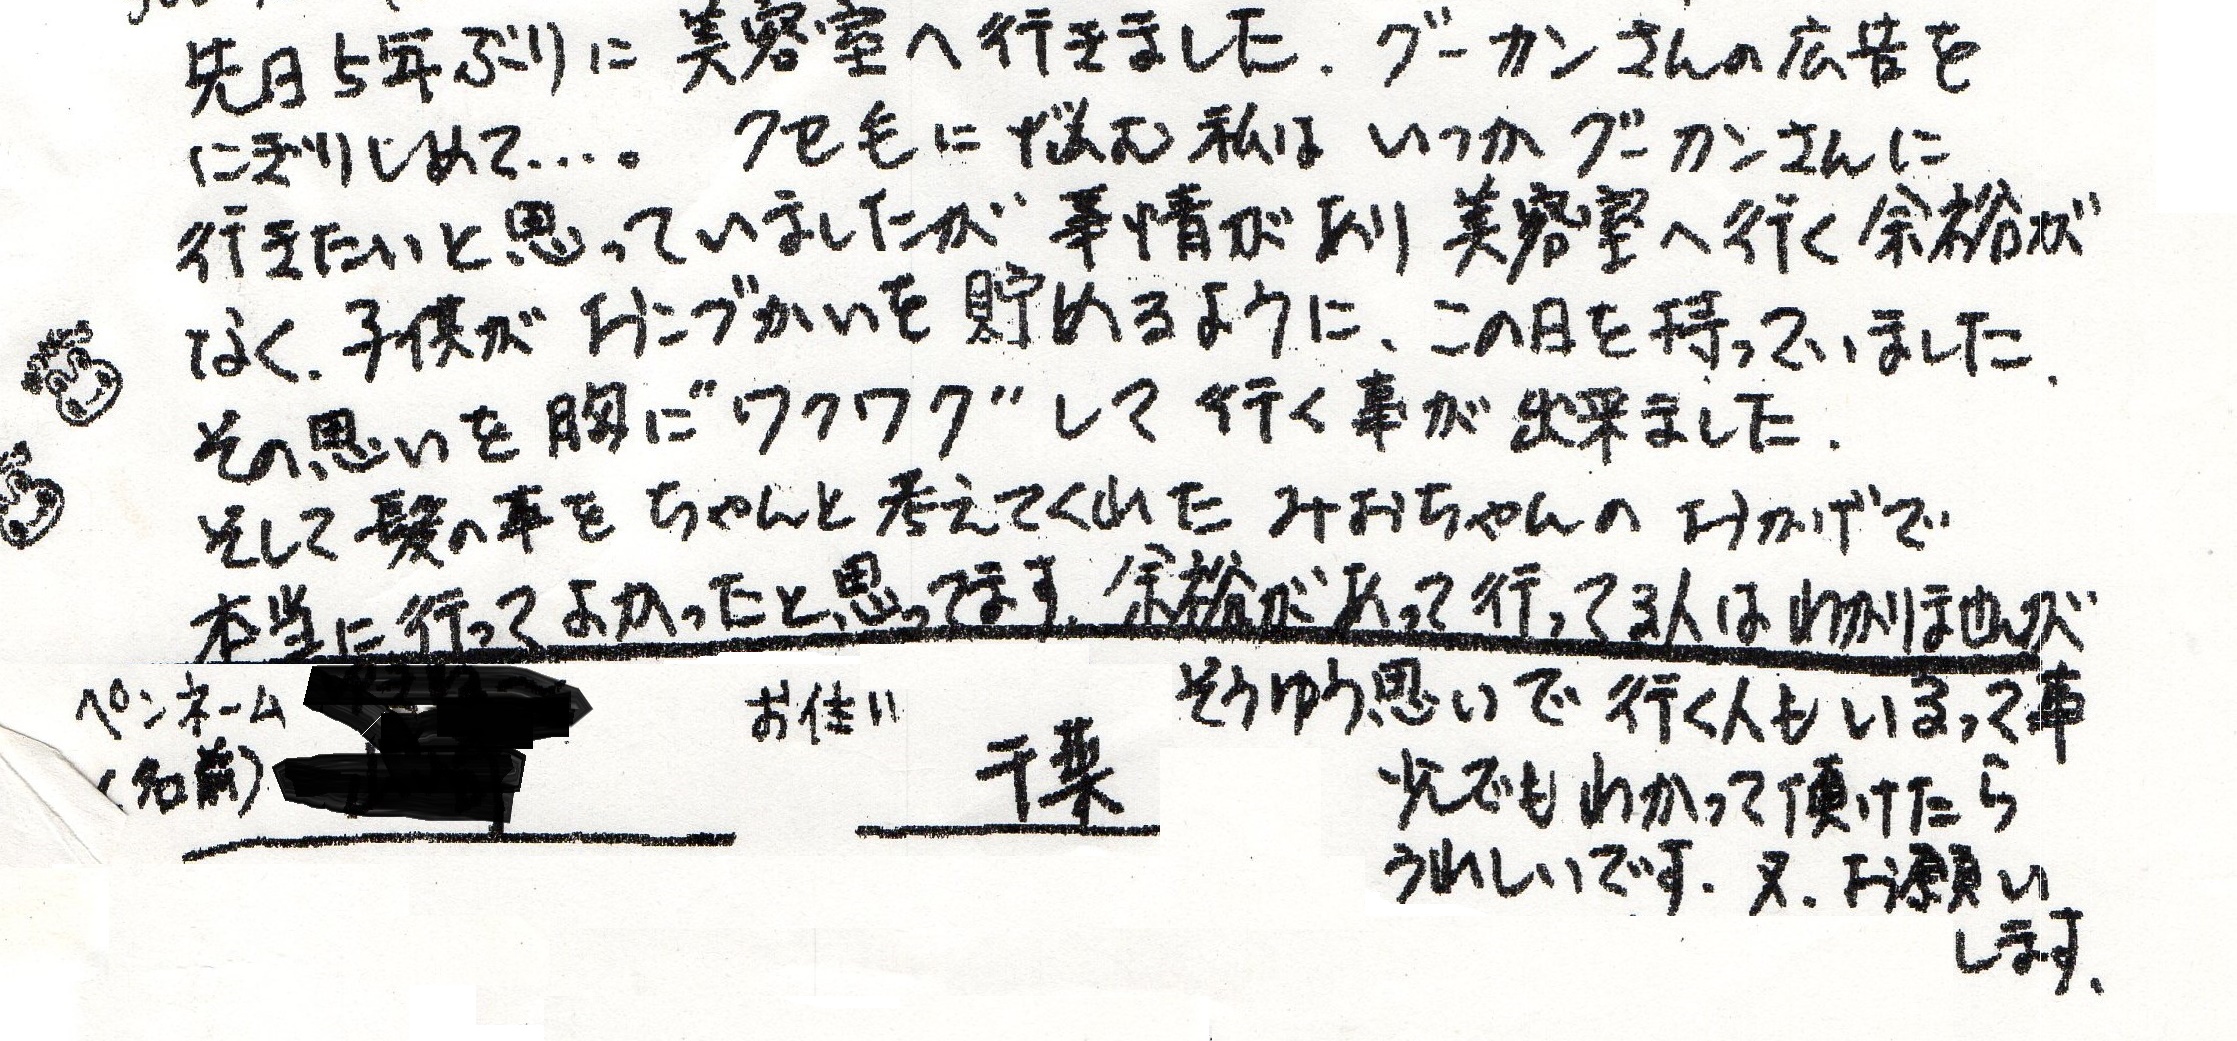 先日5年ぶりに美容室へ行きました. グーカンさんの広告を
にぎりしめて....。 クセ毛に悩む私はいつかグーカンさんに
行きたいと思っていましたが事情があり美容室へ行く余裕が
なく. 子供がおこづかいを貯めるように、この日を待っていました.
その思いを胸に"ワクワク"して行く事が出来ました.
そして髪の事をちゃんと考えてくれたみおちゃんのおかげで
本当に行ってよかったと思ってます. 余裕があって行ってる人はわかりませんが
そうゆう思いで行く人もいるって事
少しでもわかって頂けたら
うれしいです. 又. お願い
します.
ペンネーム
(名前)
お住い
千葉